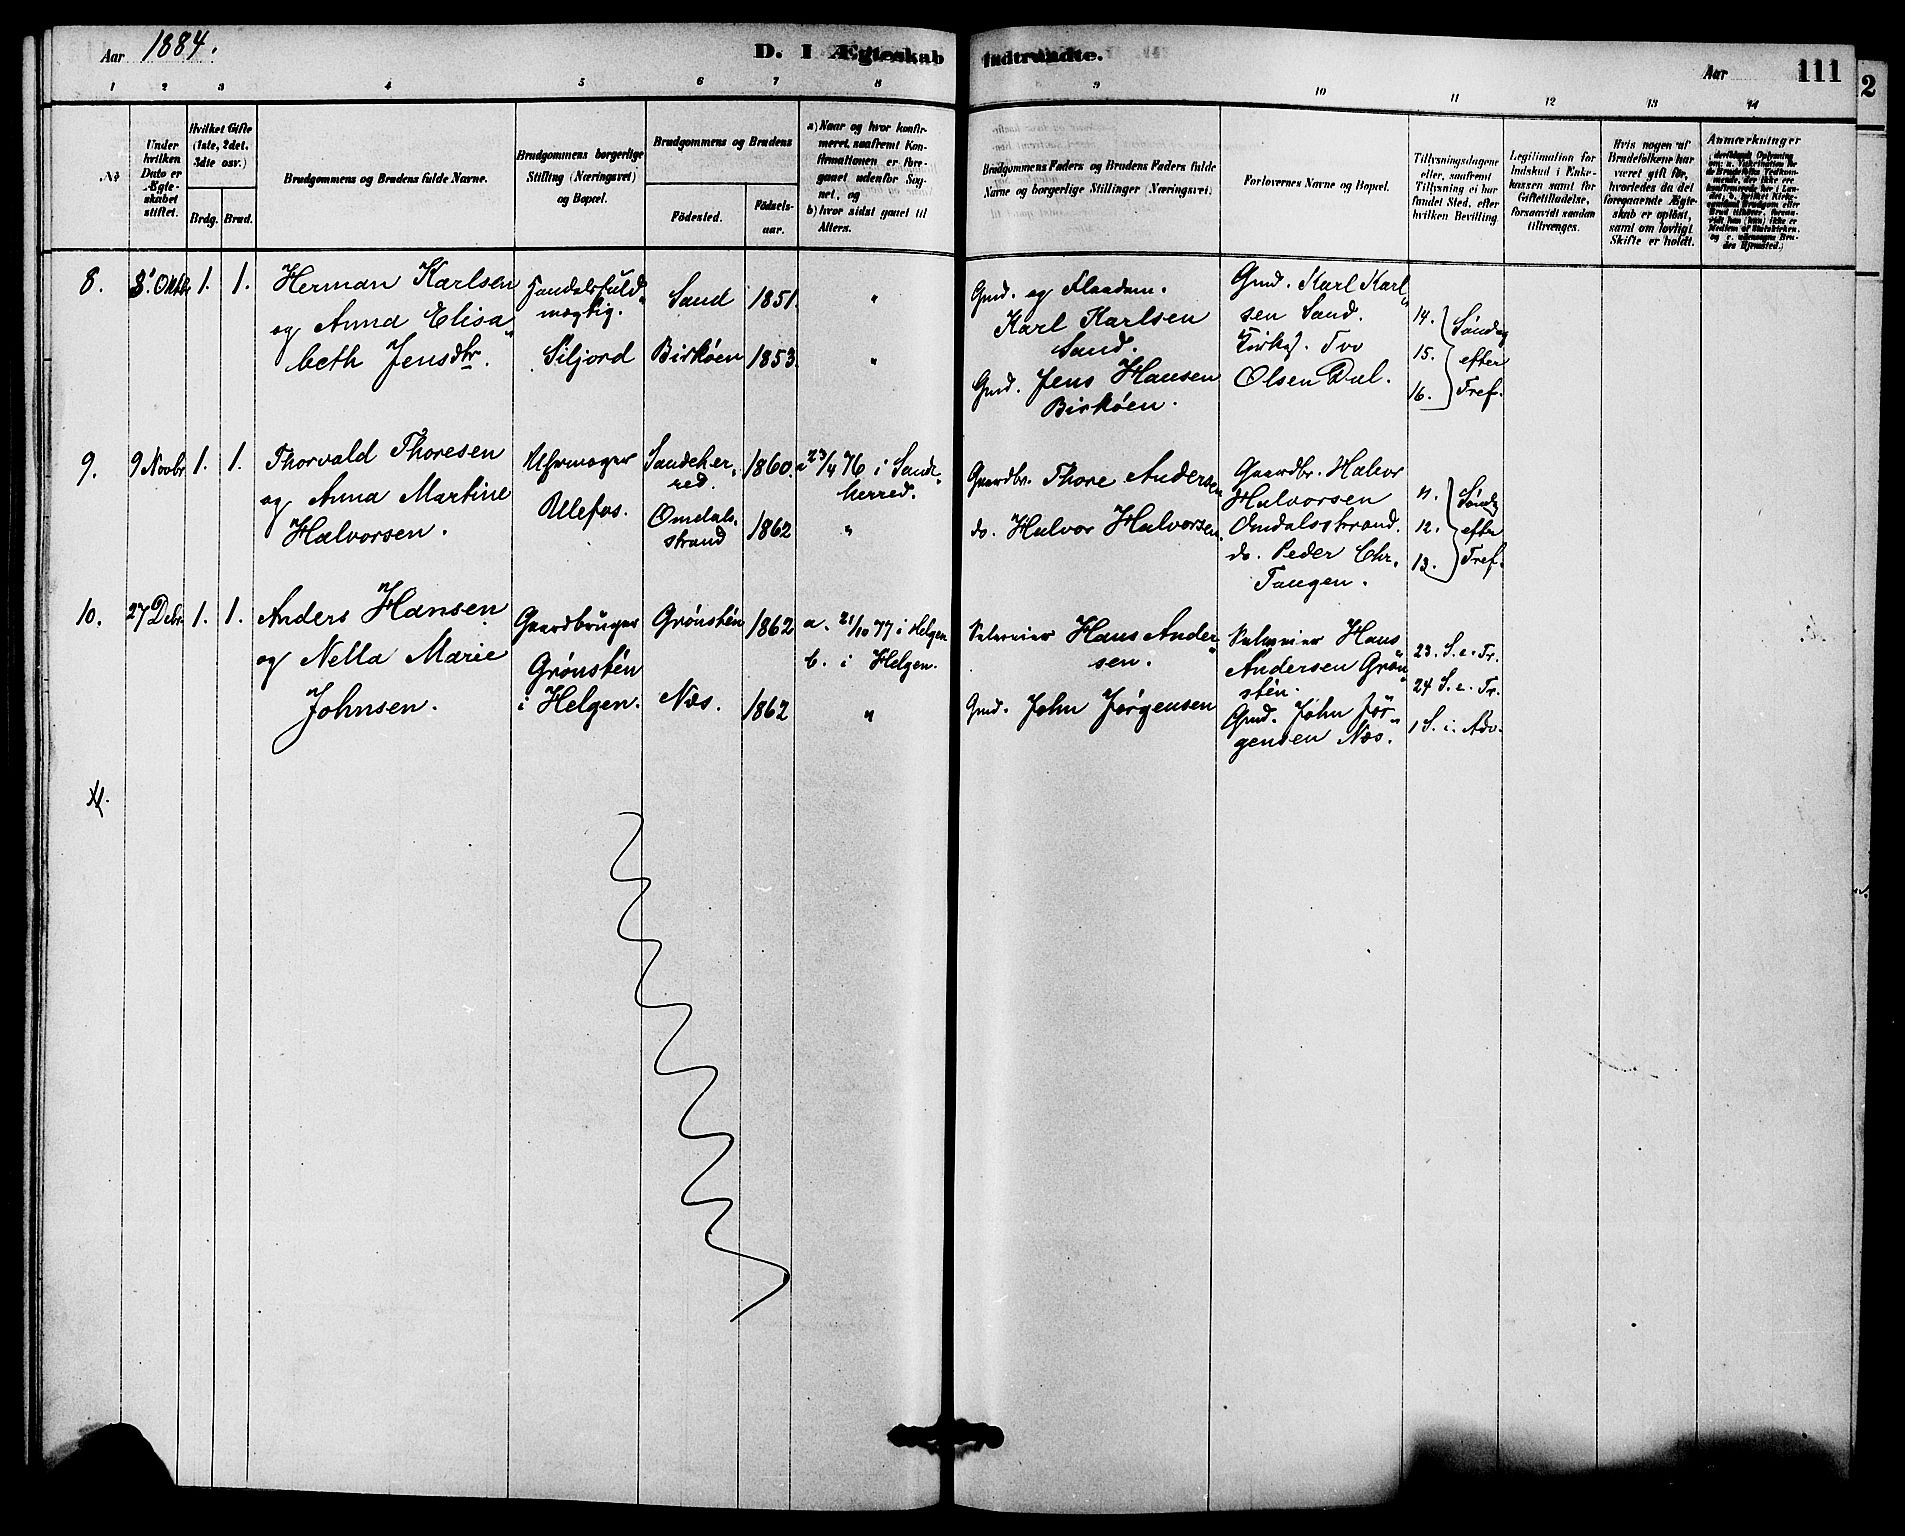 Aar 1884.
D. I Ægteskab Indtraadte.
Aar
111
2
1 2 3 4 5 6 7 8 9 10 11 12 13 14
No
Under hvilken Dato er Ægteskabet stiftet.
Hvilket Gifte (1ste, 2det, 3dte osv.)
Brdg. Brud.
Brudgommens og Brudens fulde Navne.
Brudgommens borgerlige Stilling (Næringsvei) og Bopæl.
Brudgommens og Brudens
Födested.
Födsels-aar.
a) Naar og hvor konfirmeret, saafremt Konfirmationen er foregaaet udenfor Sognet, og
b) hvor sidst gaaet til Alters.
Brudgommens Faders og Brudens Faders fulde Navne og borgerlige Stillinger (Næringsvei).
Forlovernes Navne og Bopæl.
Tillysningsdagene eller, saafremt Tillysning ei har fundet Sted, efter hvilken Bevilling
Legitimation for Indskud i Enkekassen samt for Giftetilladelse, forsaavidt saadan tiltrænges.
Hvis nogen af Brudefolkene har været gift før, hvorledes da det foregaaende Ægteskab er opløst, samt om lovligt Skifte er holdt.
Anmærkninger
8. 8' Oktbr 1. 1.
Herman Karlsen
og Anna Elisa"
beth Jensdtr.
Handelsfuld"
mægtig.
Siljord
Sand 1851. "
Birköen 1853. "
Gmd. og Flaadem.
Karl Karlsen
Sand.
Gmd. Jens Hansen
Birköen.
Gmd. Karl Karl"
sen Sand.
Kirkes. Tov
Olsen Dal.
14. Søndag
15. efter
16. Tref.
9. 9 Novbr 1. 1.
Thorvald Thoresen
og Anna Martine
Halvorsen.
Uhrmager
Ulefos.
Sandeher"
red. 1860.
a 23/4 76 i Sande"
herred.
Omdals"
strand 1862 "
Gaardbr. Thore Andersen
do. Halvor Halvorsen.
Gaardbr. Halvor
Halvorsen
Omdalsstrand.
do. Peder Chr.
Tangen.
11. Søndag
12. efter
13. Tref.
10. 27 Debr. 1. 1.
Anders Hansen
og Nella Marie
Johnsen.
Gaardbruger
Grønstén
i Helgen.
Grønstén 1862
a. 21/10 77 i Helgen
b. i Helgen.
Næs. 1862 "
Selveier Hans Ander"
sen.
Gmd. John Jörgensen
Selveier Hans
Andersen Grøn"
stén.
Gmd. John Jör"
gensen Næs.
23. S. e. Tr.
24 S. e. Tr.
1 S. i. Adv.